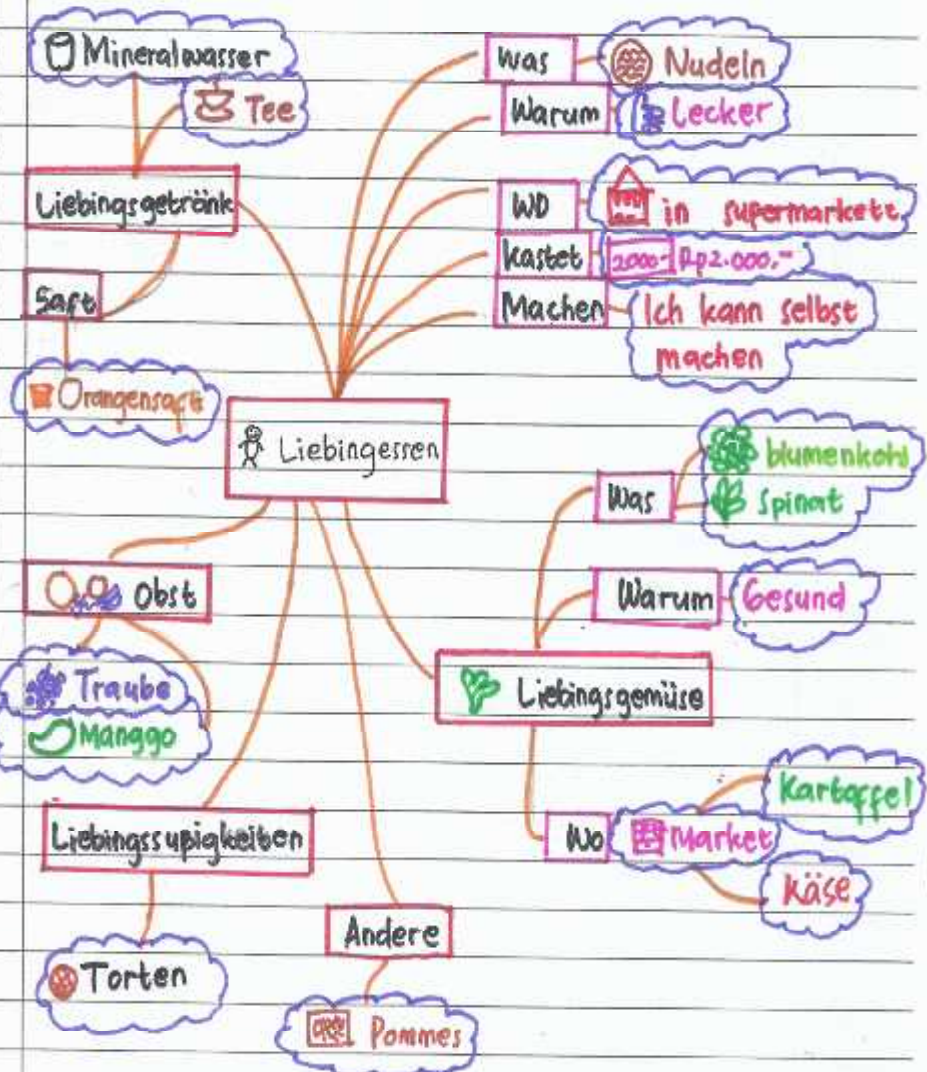 Mineralwasser
Tee
Liebingsgetränk
Saft
Orangensaft
Was
Nudeln
Warum
Lecker
WO
in supermarkett
kastet
2000,- Rp2.000,-
Machen
Ich kann selbst
machen
Liebingessen
Was
blumenkohl
Spinat
Warum
Gesund
Liebingsgemüse
Wo
Market
Kartoffel
Käse
Obst
Traube
Manggo
Liebingssußigkeiten
Torten
Andere
Pommes